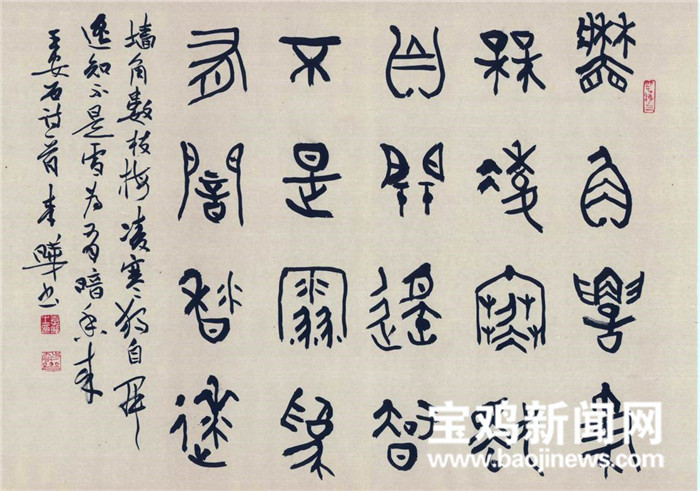 牆角數枝
楳凌寒獨
自開遥知
不是雪為
有闇香來
墙角数枝梅凌寒独自开
遥知不是雪为有暗香来
王安石诗一首
宝鸡新闻网
www.baojinews.com